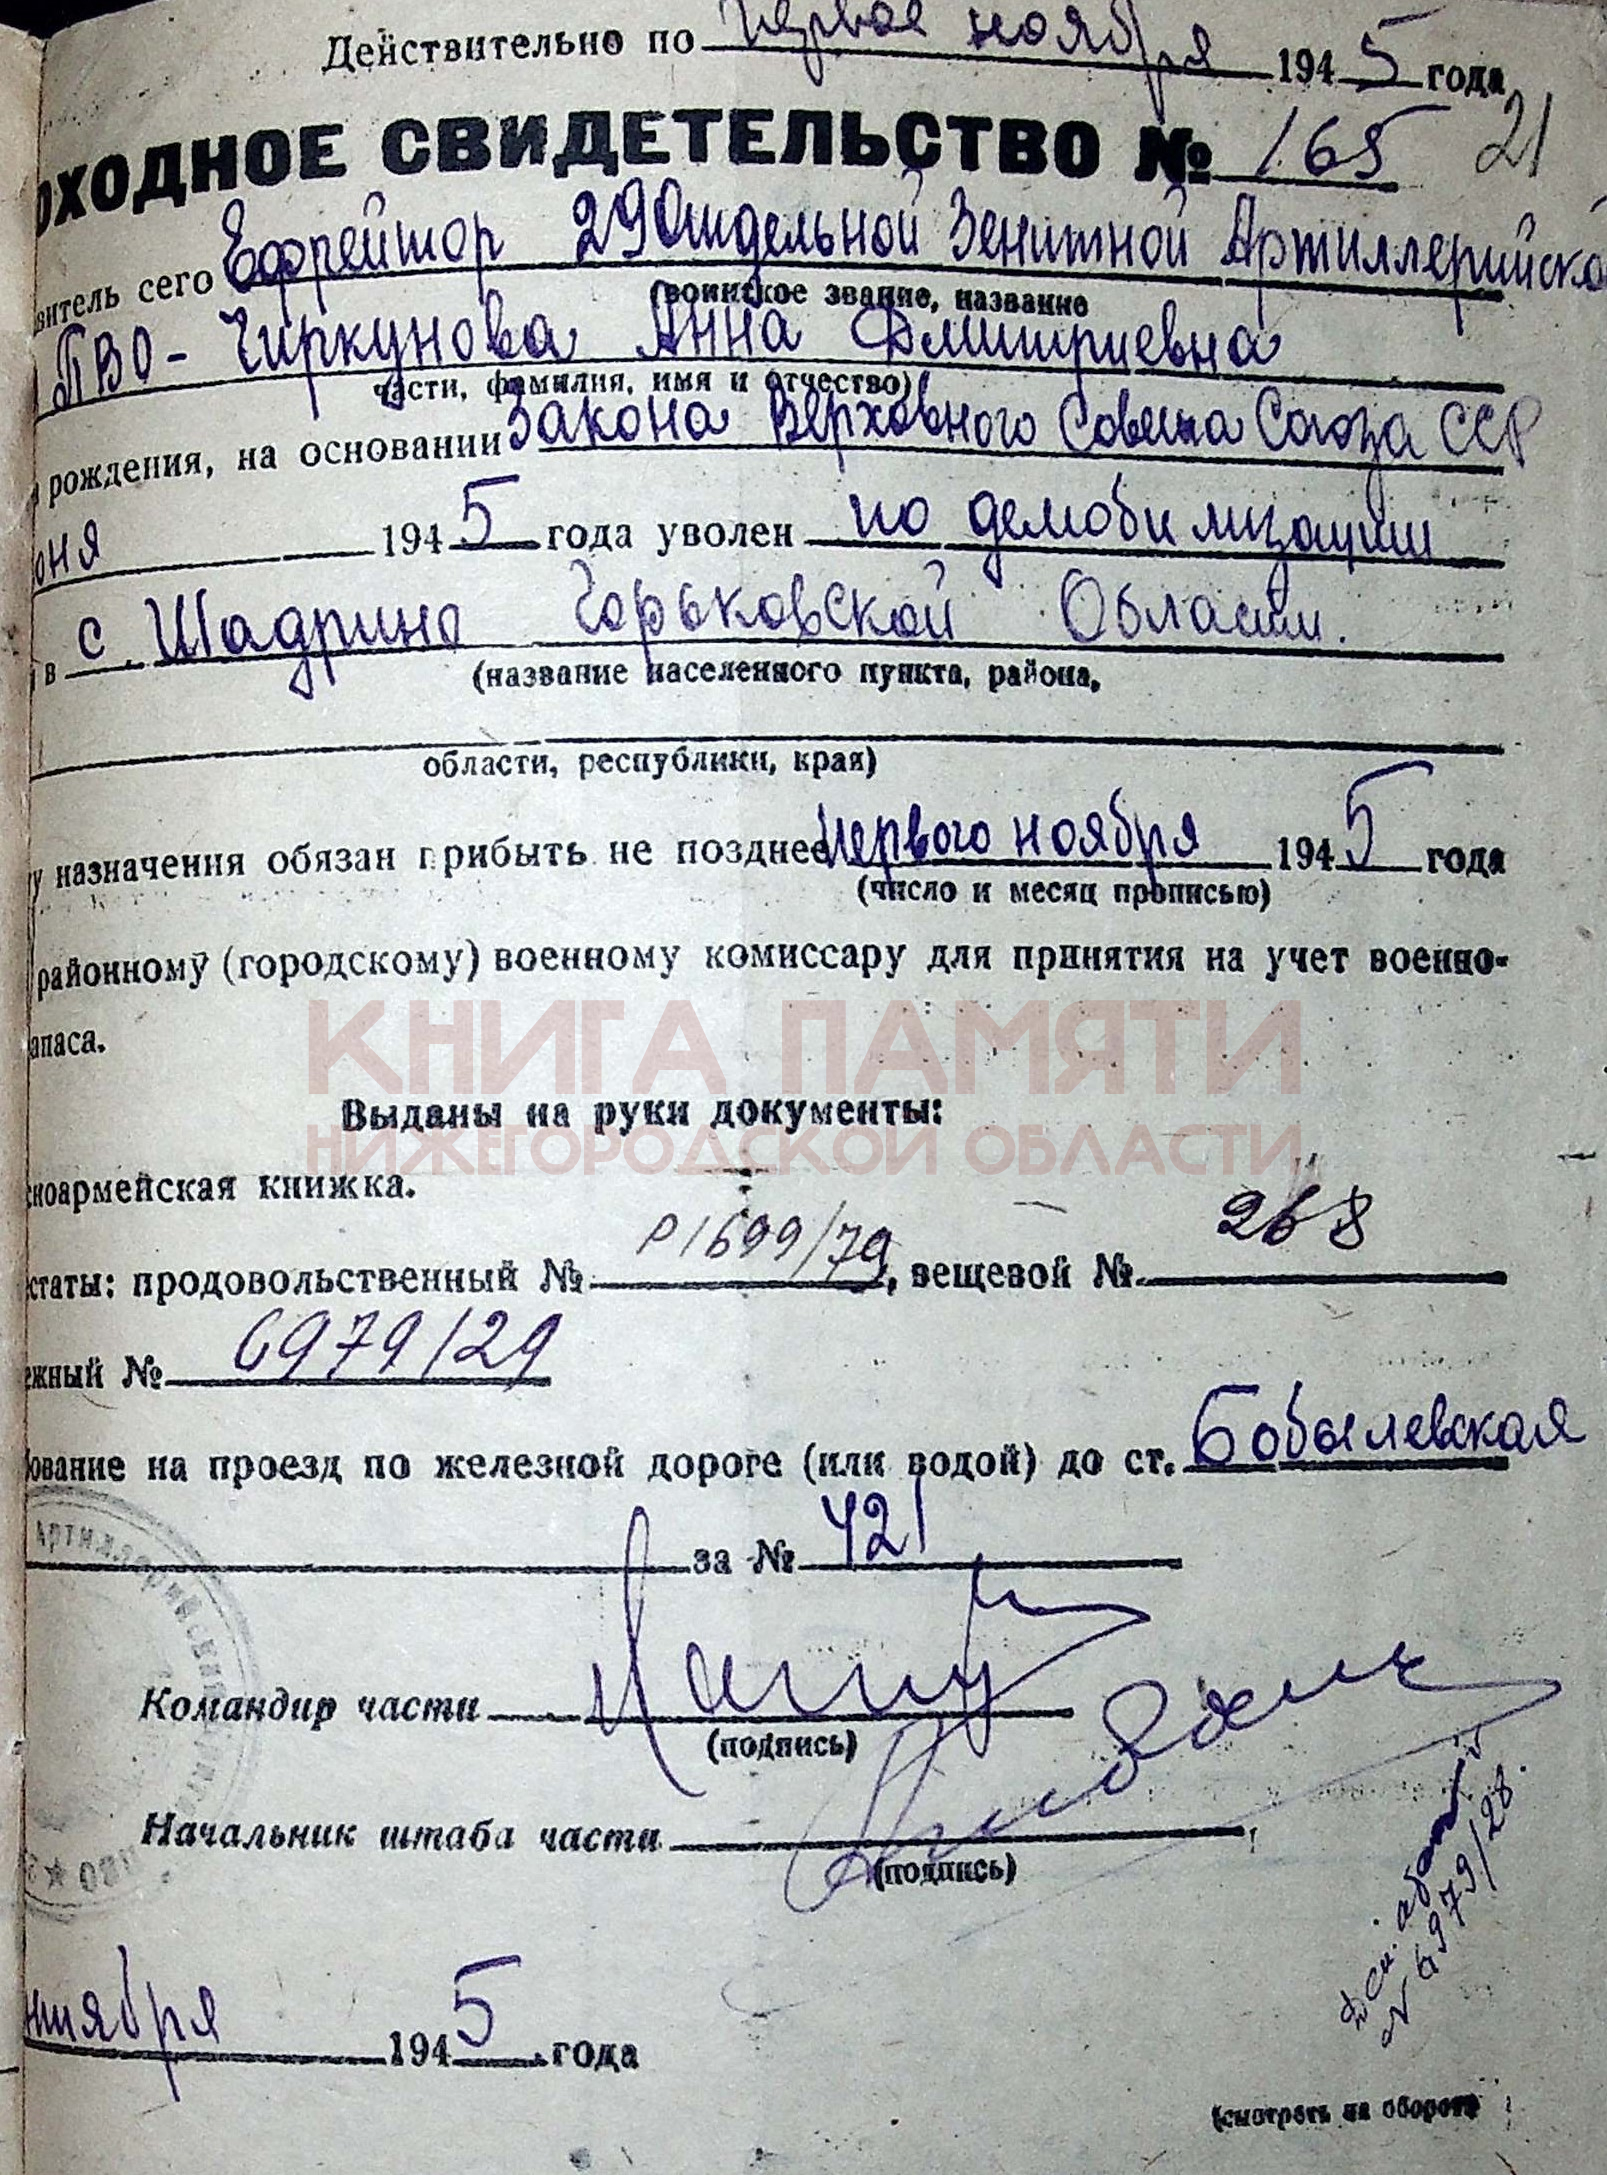 Действительно по первое ноября 1945 года
21
ОХОДНОЕ СВИДЕТЕЛЬСТВО № 165
витель сего Ефрейтор 29 Отдельной Зенитной Артиллерийско
(воинское звание, название
ПВО - Чиркунова Анна Дмитриевна
части, фамилия, имя и отчество)
рождения, на основании Закона Верховного Совета Союза ССР
юня 1945 года уволен по демобилизации
в с. Шадрино Горьковской Области.
(название населенного пункта, района,
области, республики, края)
у назначения обязан прибыть не позднее Первого ноября 1945 года
(число и месяц прописью)
районному (городскому) военному комиссару для принятия на учет военно-
апаса.
КНИГА ПАМЯТИ
НИЖЕГОРОДСКОЙ ОБЛАСТИ
Выданы на руки документы:
сноармейская книжка.
естаты: продовольственный № Р1699/79, вещевой № 268
ежный № 6979/29
бование на проезд по железной дороге (или водой) до ст. Бобылевская
за № 421
Командир части
(подпись)
Начальник штаба части
(подпись)
№ 6979/28.
нтября 1945 года
(смотреть на обороте)